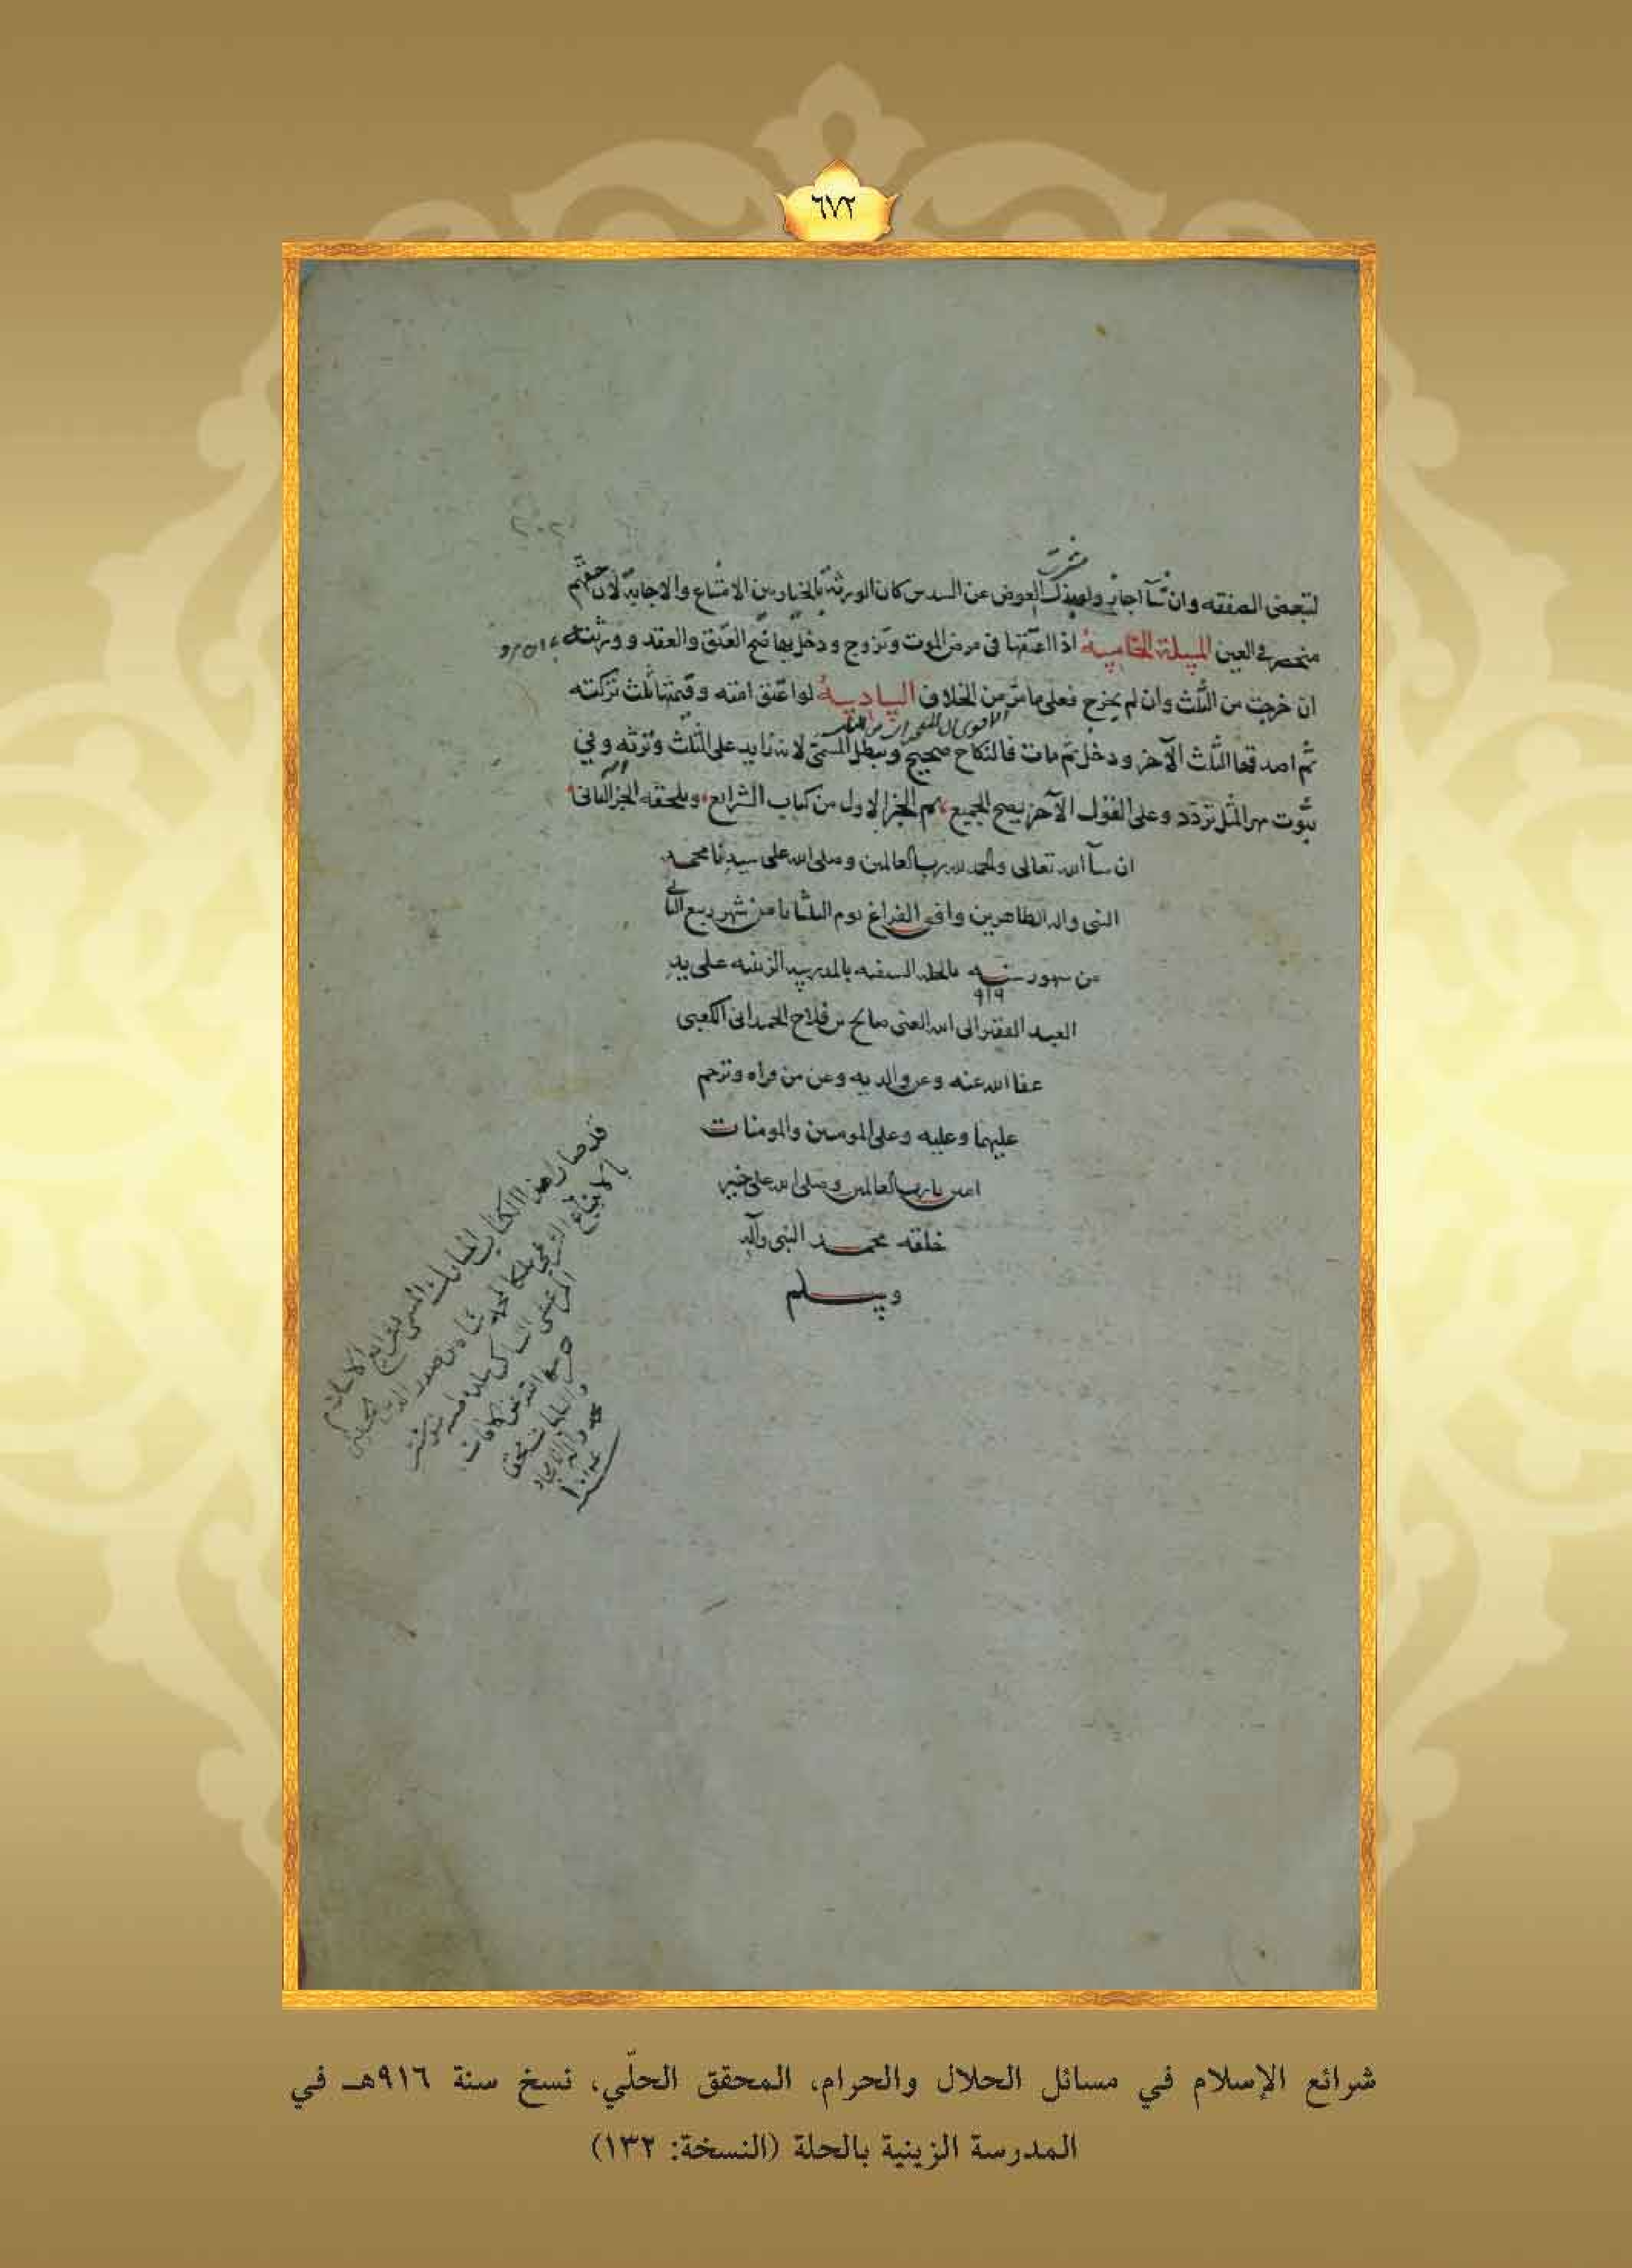 ٦٧٢
لتبعض الصفقه وان شآ اجاز ولو بذلت العوض عن السدس كان الورثة بالخيار بين الامتناع والاجابة لان حقهم
منحصر في العين المسئلة الخامسة اذا اعتقها في مرض الموت وتزوج ودخل بها صح العتق والعقد وورثته
ان خرجت من الثلث وان لم يخرج فعلى ما مر من الخلاف السادسة لو اعتق امته وقيمتها ثلث تركته
ثم اصدقها الثلث الآخر ودخل ثم مات فالنكاح صحيح ويبطل المسمى لانه زايد على الثلث وترثه وفي
ثبوت مهر المثل تردد وعلى القول الآخر يصح الجميع تم الجزء الاول من كتاب الشرايع ويلحقه الجزء الثاني
ان شآ الله تعالى والحمد لله رب العالمين وصلى الله على سيدنا محمد
النبي واله الطاهرين وافق الفراغ يوم الثلثا من شهر ربيع
من شهور سنه ٩١٦ بالحله السيفيه بالمدرسه الزينيه على يد
العبد الفقير الى الله الغني صالح بن فلاح الكعبي
عفا الله عنه وعن والديه وعن من قراه وترحم
عليهما وعليه وعلى المومنين والمومنات
امين يا رب العالمين وصلى الله على خير
خلقه محمد النبي وآله
وسلم
قد صار هذا الكتاب المسمى بشرايع الاسلام
شرائع الإسلام في مسائل الحلال والحرام، المحقق الحلّي، نسخ سنة ٩١٦هـ في
المدرسة الزينية بالحلة (النسخة: ١٣٢)